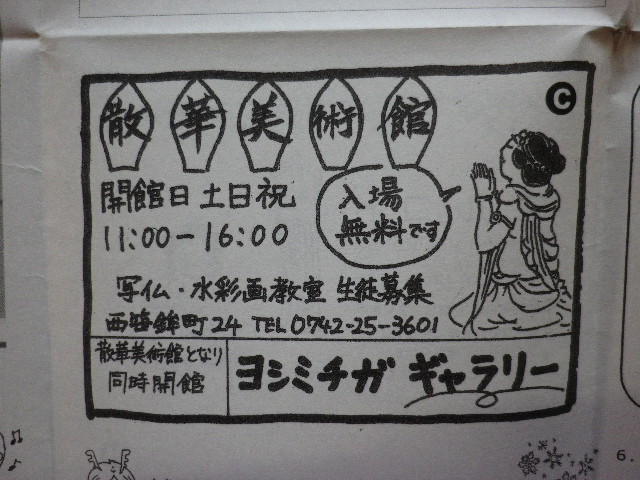 散華美術館
Ⓒ
開館日 土日祝
11:00-16:00
入場
無料です
写仏・水彩画教室 生徒募集
西笹鉾町24 TEL0742-25-3601
散華美術館となり
同時開館
ヨシミチガ ギャラリー
6.